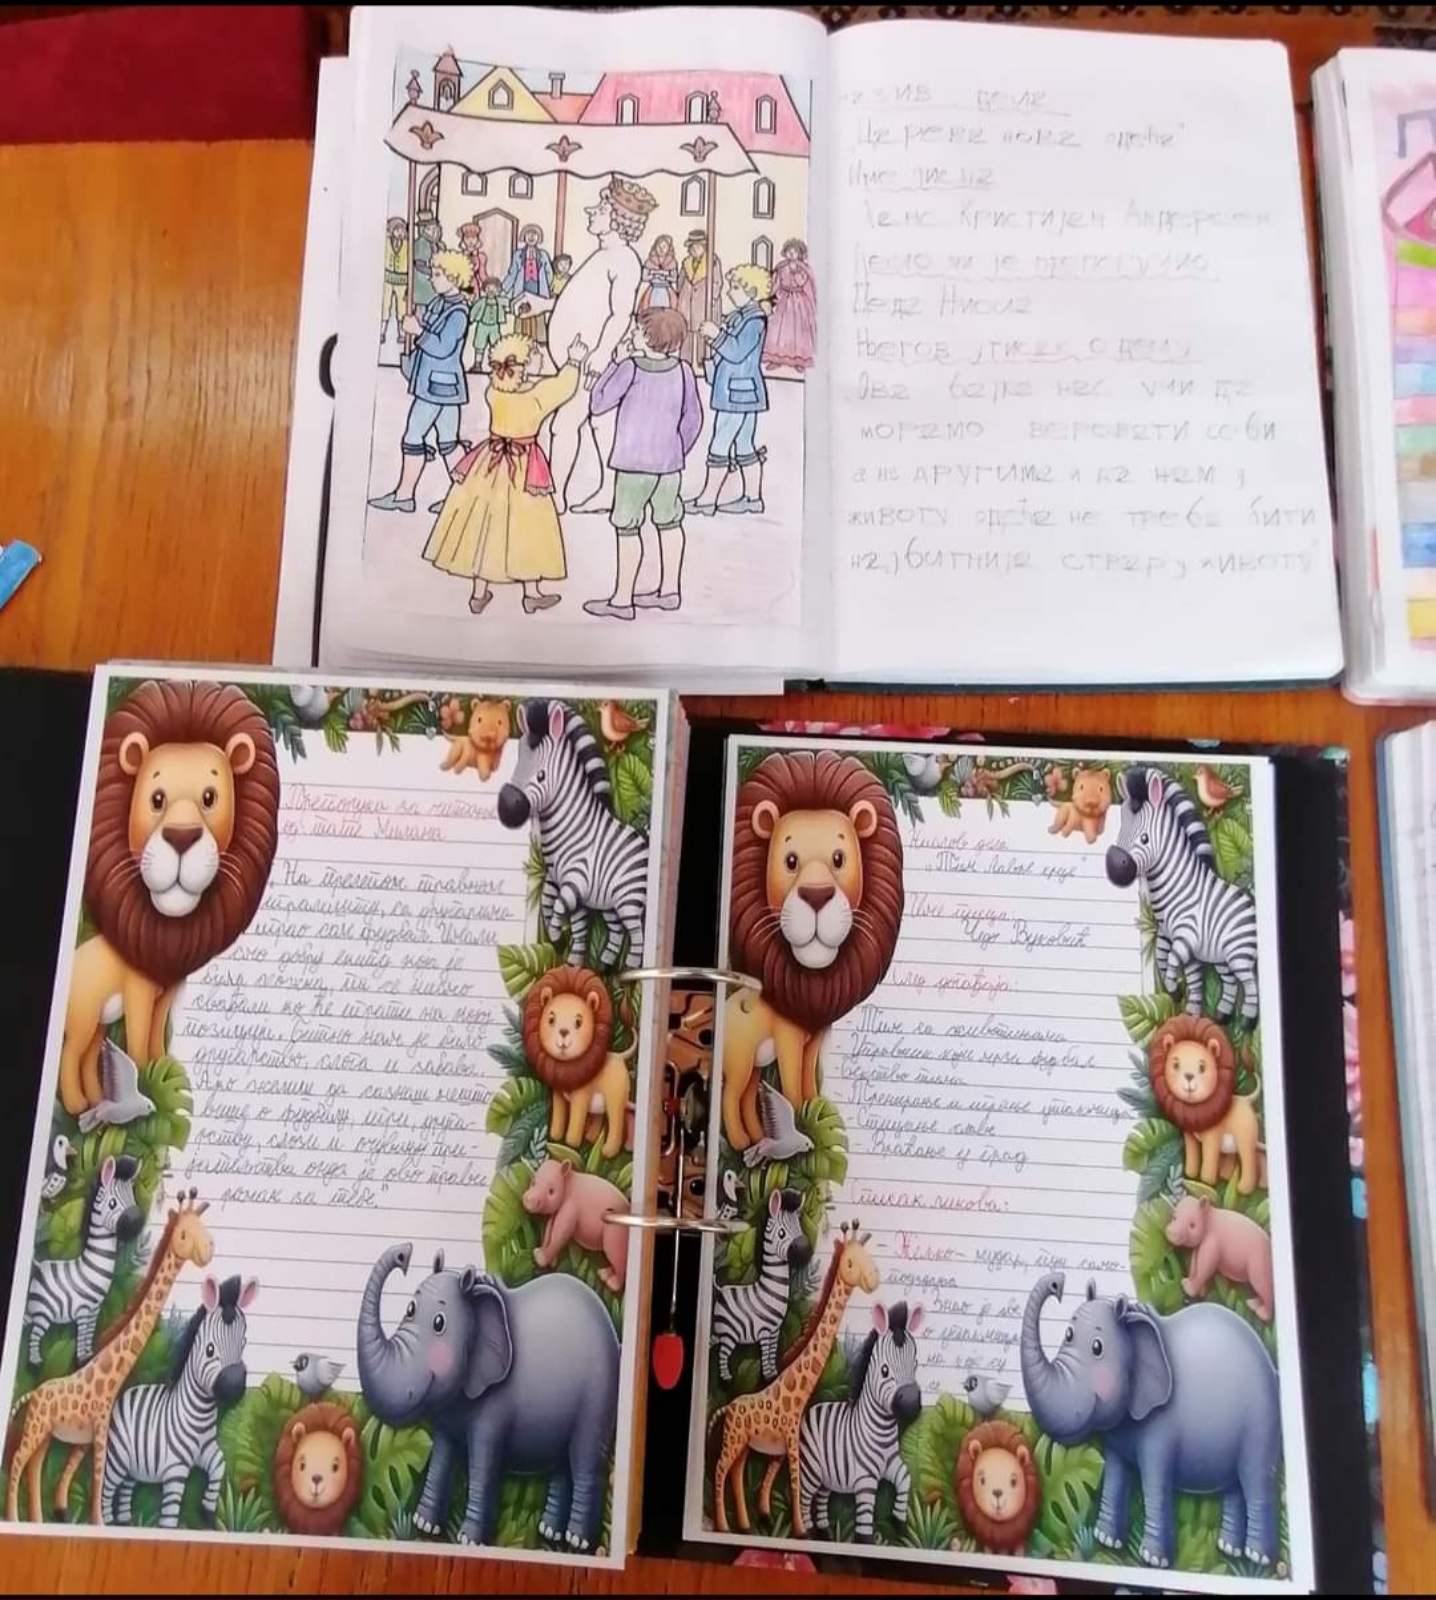 назив дела
"Царева нова одећа"
Име писца
Ханс Кристијан Андерсен
Дело ми је препоручио
Деда Никола
Његов утисак о делу
Ова бајка нас учи да
морамо веровати себи
а не другима и да нам у
животу одећа не треба бити
најбитнија ствар у животу"
Препорука за читање
од тате Милана
"На прелепом травнатом
игралишту, са другарима
играо сам фудбал. Имали
смо добру екипу која је
била сложна, ми се нисмо
свађали ко ће играти на којој
позицији. Битно нам је било
другарство, слога и забава.
Ако желиш да сазнаш нешто
више о фудбалу, игри, друга-
рству, слози и очувању при-
јатељства онда је ово прави
роман за тебе."
Наслов дела
„Тим Лавље срце"
Име писца:
Чедо Вуковић
След догађаја:
- Тим са животињама
- Управник који мрзи фудбал
- Бекство тима
- Тренирање и играње утакмица
- Стицање славе
- Враћање у град
Списак ликова:
- Жељко - мудар, пун само-
поуздања